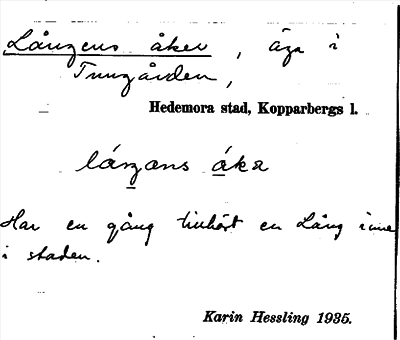 Långens åker, äga i
Tungården,
Hedemora stad, Kopparbergs l.
låŋans åka
Har en gång tillhört en Lång inne
i staden.
Karin Hessling 1935.